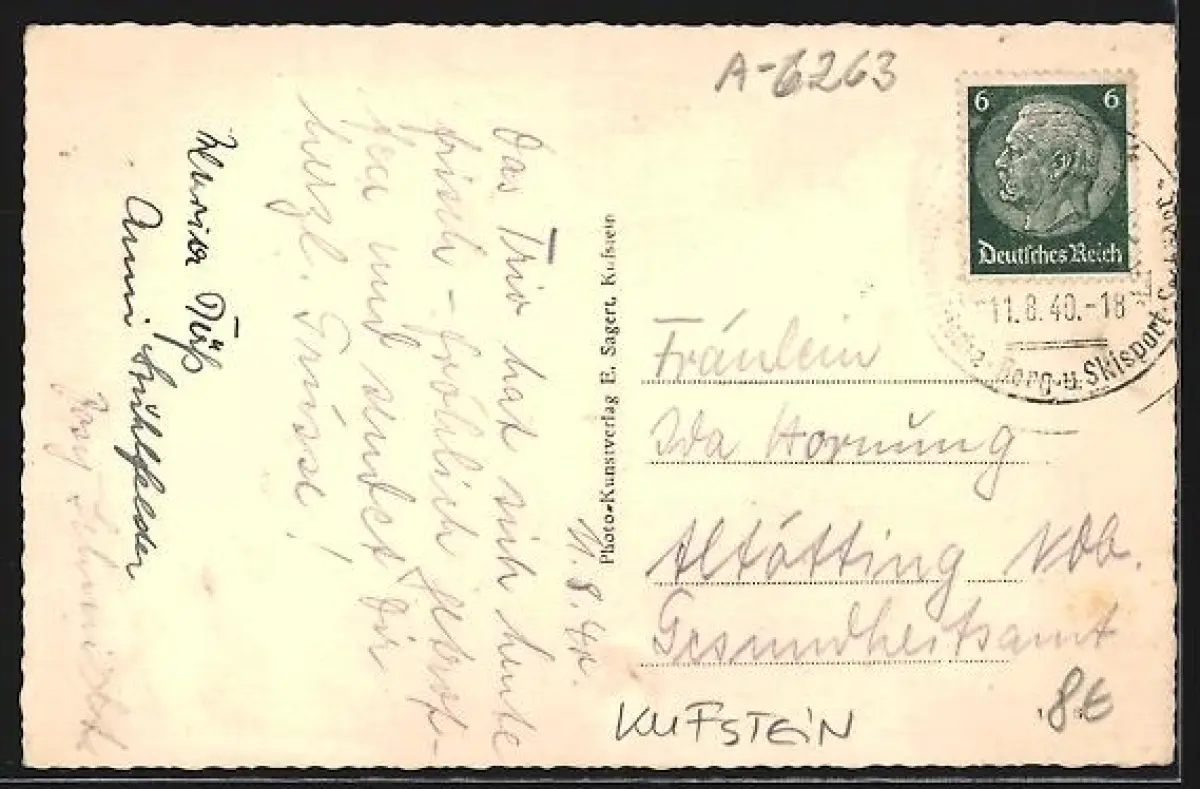 A-6263
6 6
Deutsches Reich
11.8.40.-18
Berg-u. Skisport
11.8.40.
Das Trio hat sich heute
frisch - fröhlich getrof-
fen und sendet Dir
herzl. Grüsse!
Maria Süß
Anni Mühlfelder
Schmidt
Photo-Kunstverlag E. Sagert, Kufstein
Fräulein
Ida Hornung
Altötting Obb.
Gesundheitsamt
KUFSTEIN
8€